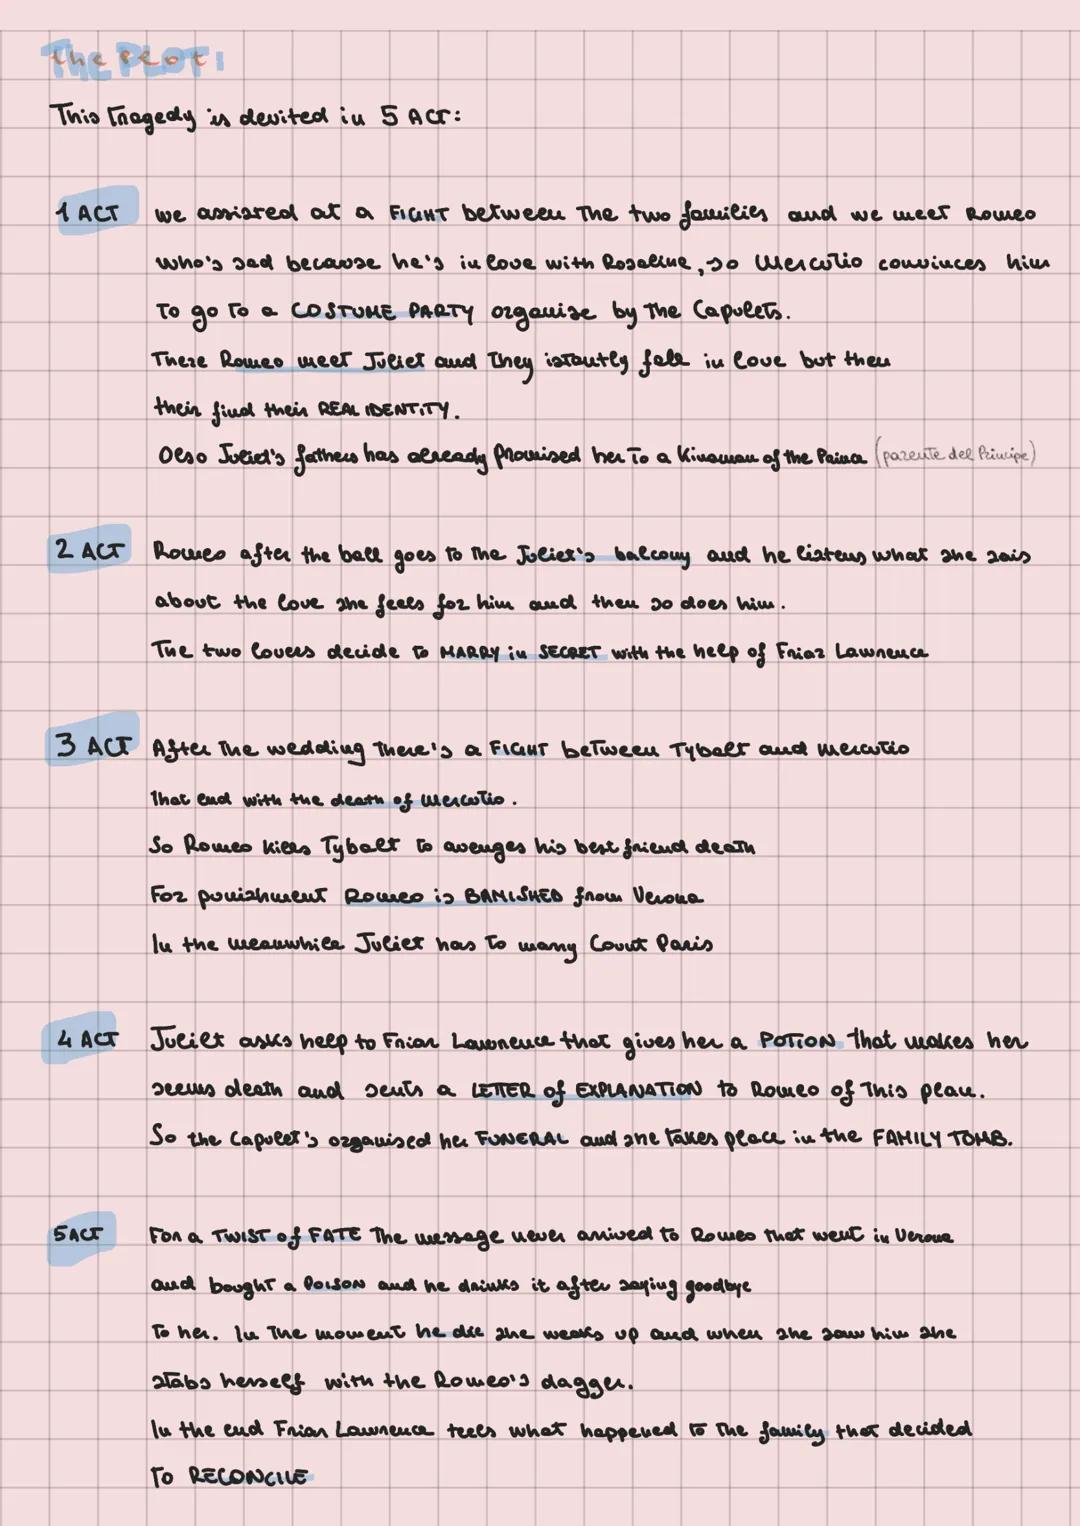 The PLOT:
This Tragedy is devited in 5 ACT:
1 ACT we assisted at a FIGHT between The two families and we meet Romeo
who's sad because he's in love with Rosaline, so Mercutio convinces him
To go To a COSTUME PARTY organise by The Capulets.
There Romeo meet Juliet and They istantly fall in love but then
their find their REAL IDENTITY.
Olso Juliet's fathers has already promised her To a Kinsman of the Prince (parente del Principe)
2 ACT Romeo after the ball goes to The Juliet's balcony and he listens what she sais
about the love she feels for him and then so does him.
The two lovers decide to MARRY in SECRET with the help of Friar Lawrence
3 ACT After The wedding There's a FIGHT between Tybalt and Mercutio
That end with the death of Mercutio.
So Romeo kills Tybalt to avenges his best friend death
For punishment Romeo is BANISHED from Verona
In the meanwhile Juliet has To marry Count Paris
4 ACT Juliet asks help to Friar Lawrence that gives her a POTION That makes her
seems death and sents a LETTER of EXPLANATION to Romeo of This plan.
So the Capulet's organised her FUNERAL and she takes place in the FAMILY TOMB.
5 ACT For a TWIST of FATE The message never arrived to Romeo that went in Verona
and bought a POISON and he drinks it after saying goodbye
To her. In The moment he die she weaks up and when she saw him she
stabs herself with the Romeo's dagger.
In the end Friar Lawrence tells what happened to The family that decided
To RECONCILE